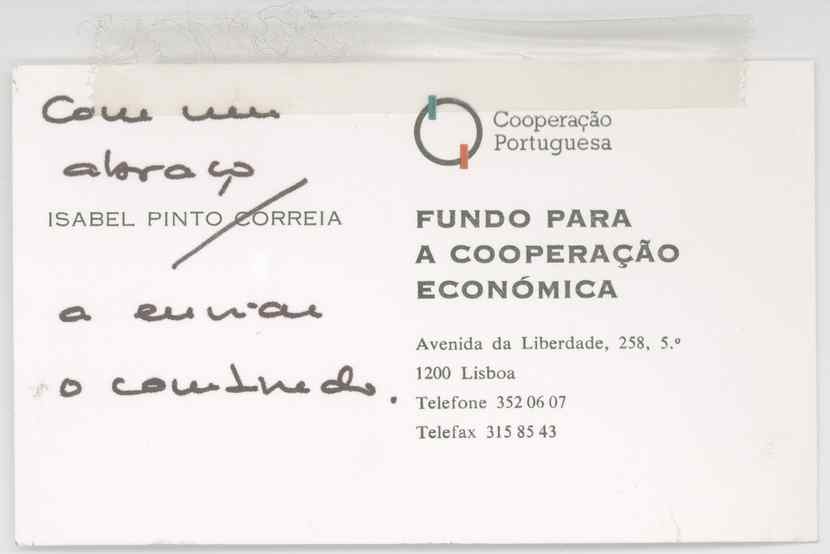 Com um
abraço
ISABEL PINTO CORREIA
a enviar
o combinado.
Cooperação
Portuguesa
FUNDO PARA
A COOPERAÇÃO
ECONÓMICA
Avenida da Liberdade, 258, 5.º
1200 Lisboa
Telefone 352 06 07
Telefax 315 85 43